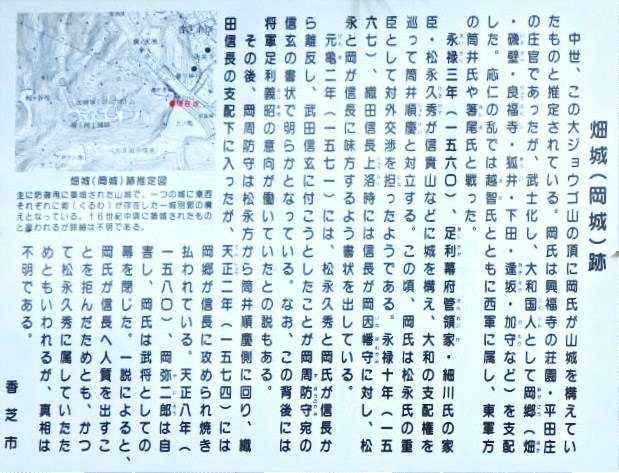 畑城(岡城)跡
中世、この大ジョウゴ山の頂に岡氏が山城を構えてい
たものと推定されている。岡氏は興福寺の荘園・平田庄
の庄官であったが、武士化し、大和国人として岡郷(畑
・磯壁・良福寺・狐井・下田・逢坂・加守など)を支配
した。応仁の乱では越智氏とともに西軍に属し、東軍方
の筒井氏や箸尾氏と戦った。
永禄三年(一五六〇)、足利幕府管領家・細川氏の家
臣・松永久秀が信貴山などに城を構え、大和の支配権を
巡って筒井順慶と対立する。この頃、岡氏は松永氏の重
臣として対外交渉を担ったようである。永禄十年(一五
六七)、織田信長上洛時には信長が岡因幡守に対し、松
永と岡が信長に味方するよう書状を出している。
元亀二年(一五七一)には、松永久秀と岡氏が信長か
ら離反し、武田信玄に付こうとしたことが岡周防守宛の
信玄の書状で明らかとなっている。なお、この背後には
将軍足利義昭の意向が働いていたとの説もある。
その後、岡周防守は松永方から筒井順慶側に回り、織
田信長の支配下に入ったが、天正二年(一五七四)には
岡郷が信長に攻められ焼き
払われている。天正八年(
一五八〇)、岡弥二郎は自
害し、岡氏は武将としての
幕を閉じた。一説によると、
岡氏が信長へ人質を出すこ
とを拒んだためとも、かつ
て松永久秀に属していたた
めともいわれるが、真相は
不明である。
香芝市
現在地
畑城(岡城)跡推定図
主に防御用に築城された山城で、一つの城に東西
それぞれに郭(くるわ)が存在した一城別郭の構
えとなっている。16世紀中頃に築城されたもの
と思われるが詳細は不明である。